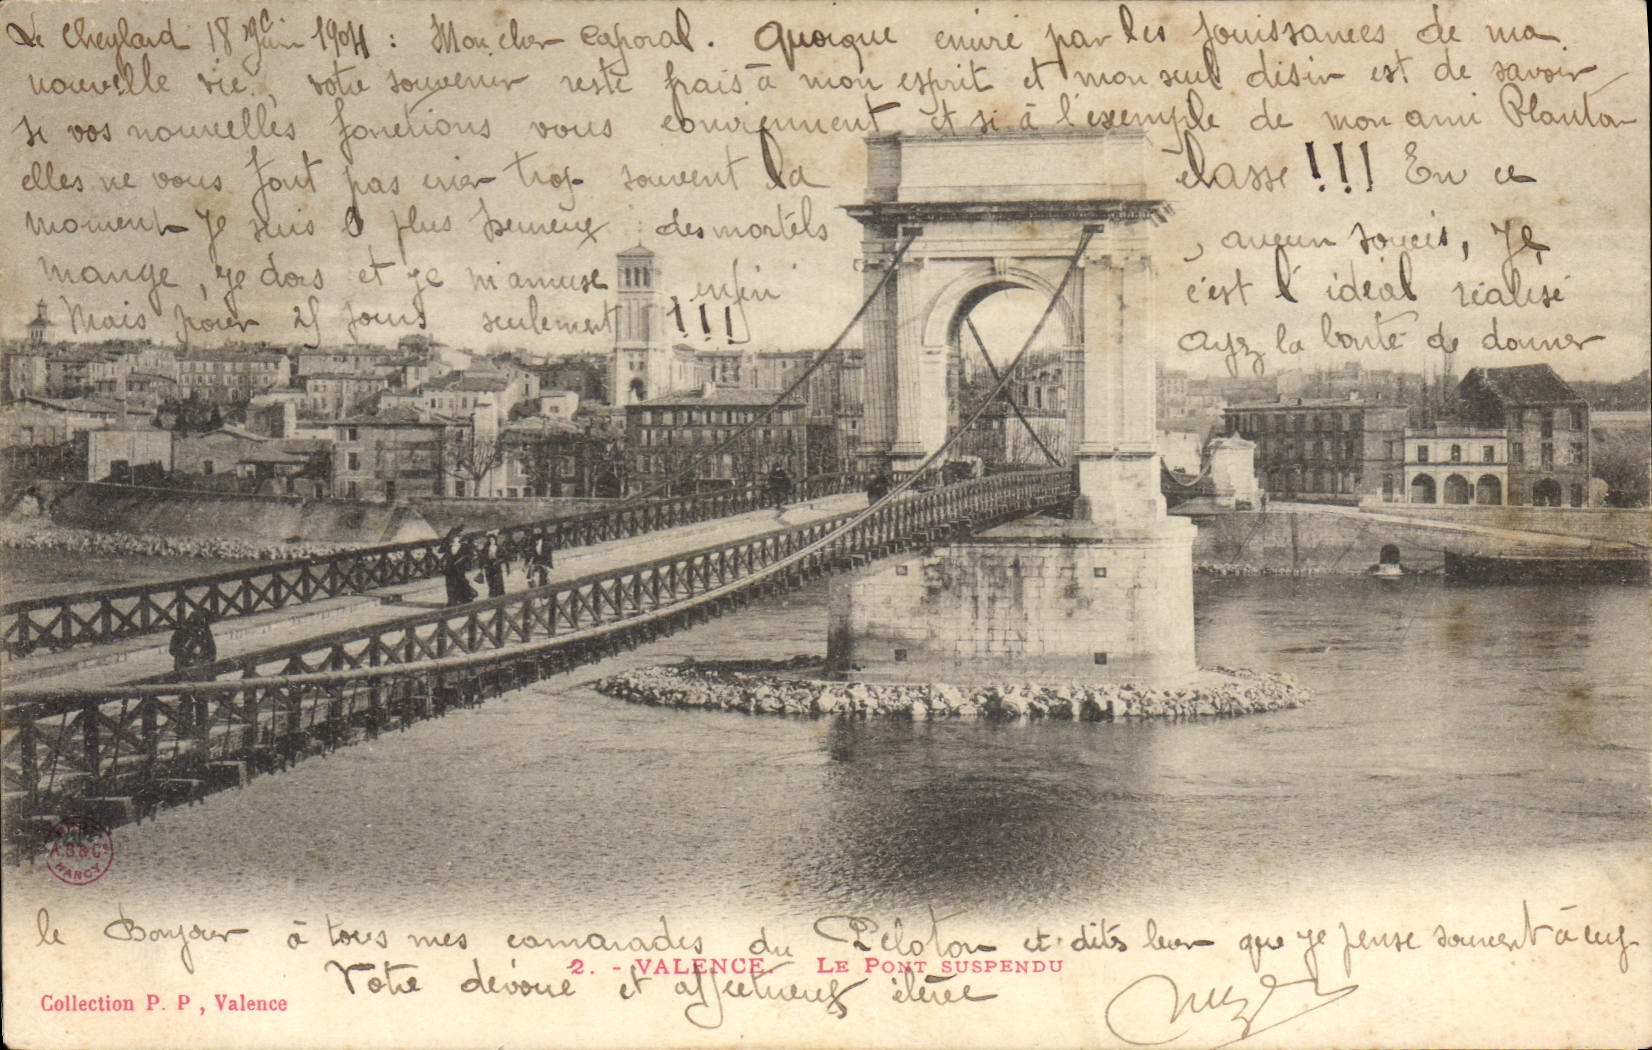 Le Cheylard 18 Juin 1904 : Mon cher Caporal. Quoique enivré par les jouissances de ma
nouvelle vie, votre souvenir reste frais à mon esprit et mon seul désir est de savoir
si vos nouvelles fonctions vous conviennent et si à l'exemple de mon ami Planton
elles ne vous font pas crier trop souvent la classe !!! En ce
moment je suis le plus heureux des mortels, aucun soucis, je
mange, je dors et je m'amuse enfin c'est l'idéal réalisé
Mais pour 25 jours seulement !!! ayez la bonté de donner
le Bonjour à tous mes camarades du Peloton et dites leur que je pense souvent à eux
Votre dévoué et affectueux élève
2. - VALENCE. LE PONT SUSPENDU
Collection P. P, Valence
A.B & Cie
NANCY